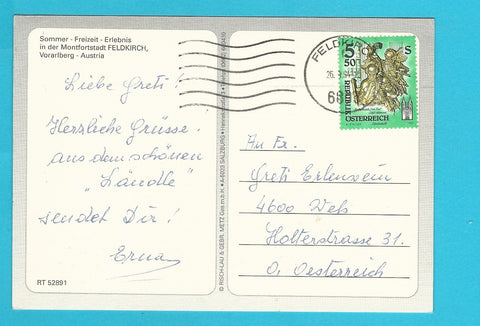 Sommer - Freizeit - Erlebnis
in der Montfortstadt FELDKIRCH,
Vorarlberg - Austria
Liebe Greti!
Herzliche Grüsse
aus dem schönen
"Ländle"
sendet Dir!
Erna
RT 52891
© RISCH-LAU & GEBR. METZ Ges.m.b.H. • A-5023 SALZBURG •
FELDKIRCH
26. 9.
5 50
S
REPUBLIK
ÖSTERREICH
An Fr.
Greti Erlenwein
4600 Wels
Holterstrasse 31.
O, Oesterreich